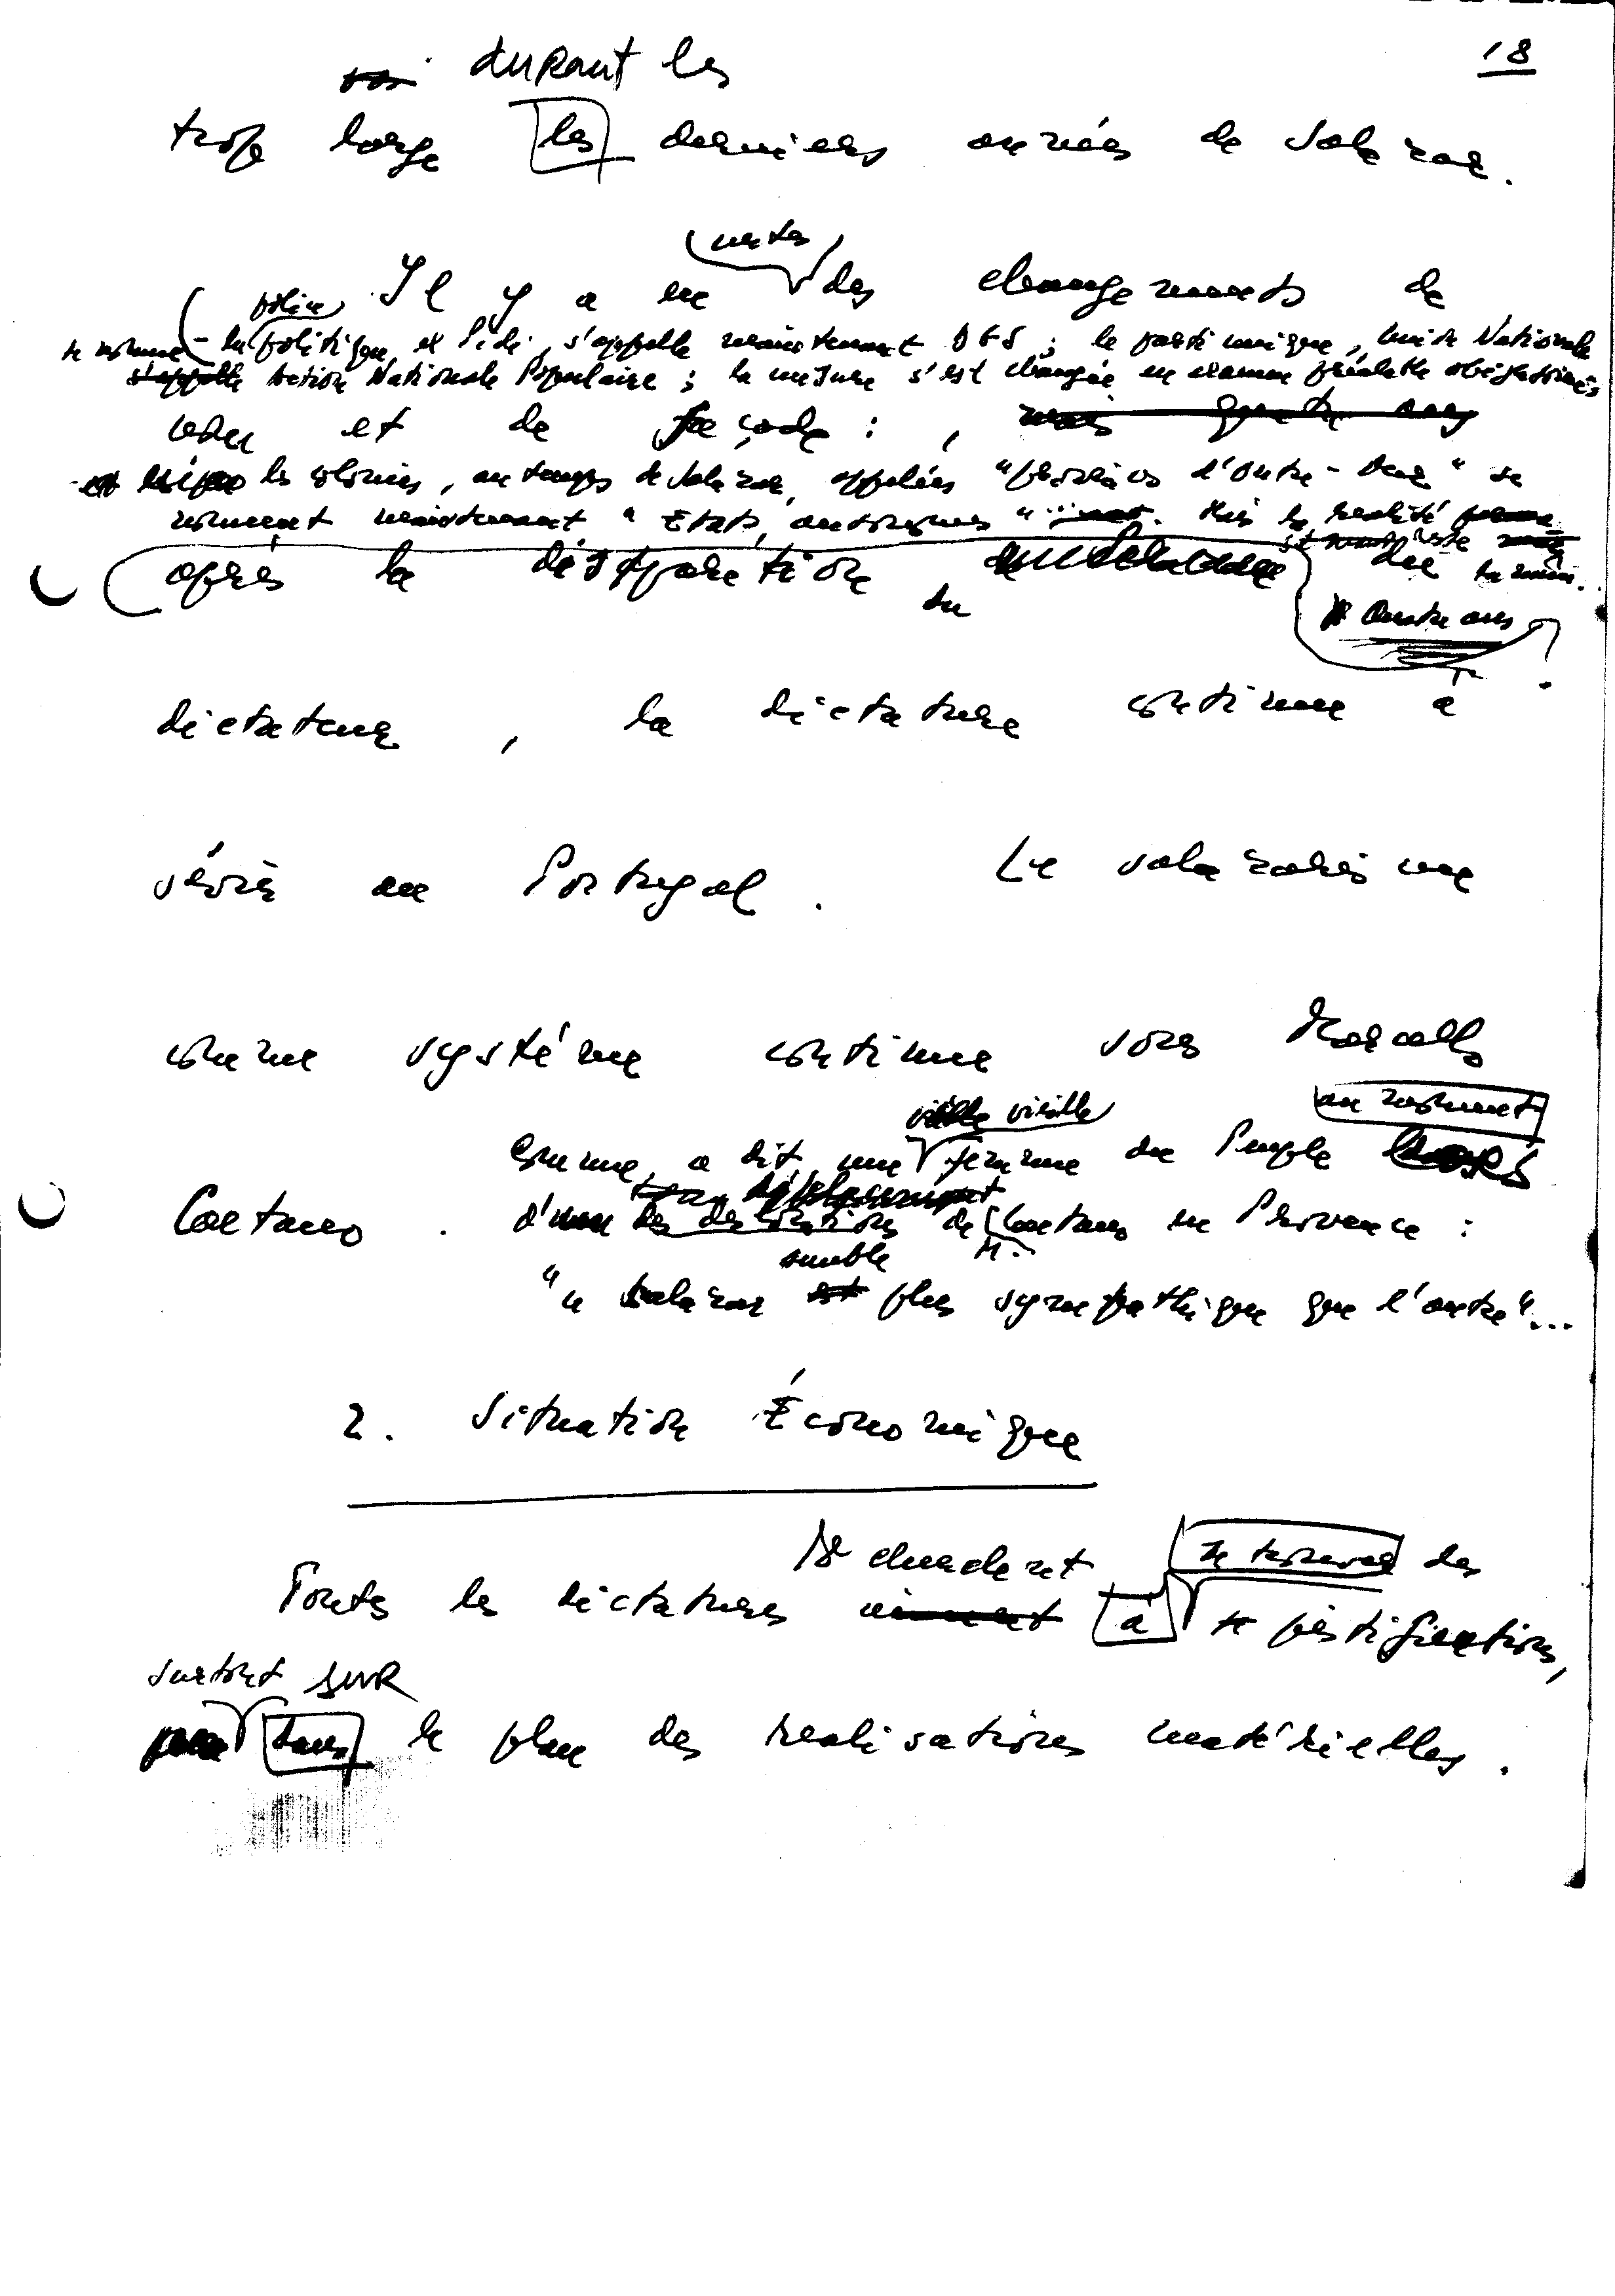 18
durant les
trop large les derniers années de Salazar.
certes
Il y a eu des changements de
police
se nomme - la politique, ex Pide, s'appelle maintenant DGS ; le parti unique, Union Nationale
s'appelle Action Nationale Populaire ; la censure s'est changée en examen préalable obligatoire
et de façade : ,
les colonies, au temps de Salazar, appelées "provinces d'Outre-Mer" se
nomment maintenant "Etats autonomes"... Mais la realité
reste la même.
après la disparition du
Quatre ans ?
dictateur, la dictature continue à
sévir au Portugal. Le salazarisme
comme système continue sous Marcello
vieille au moment
Comme a dit une femme du Peuple
déplacement
Caetano. d'un des de M. Caetano en Provence :
semble
"ce Salazar est plus sympathique que l'autre"...
2. Situation Économique
cherchent se trouver des
Toutes les dictatures à justifications,
surtout SUR
dans le plan des realisations matérielles.